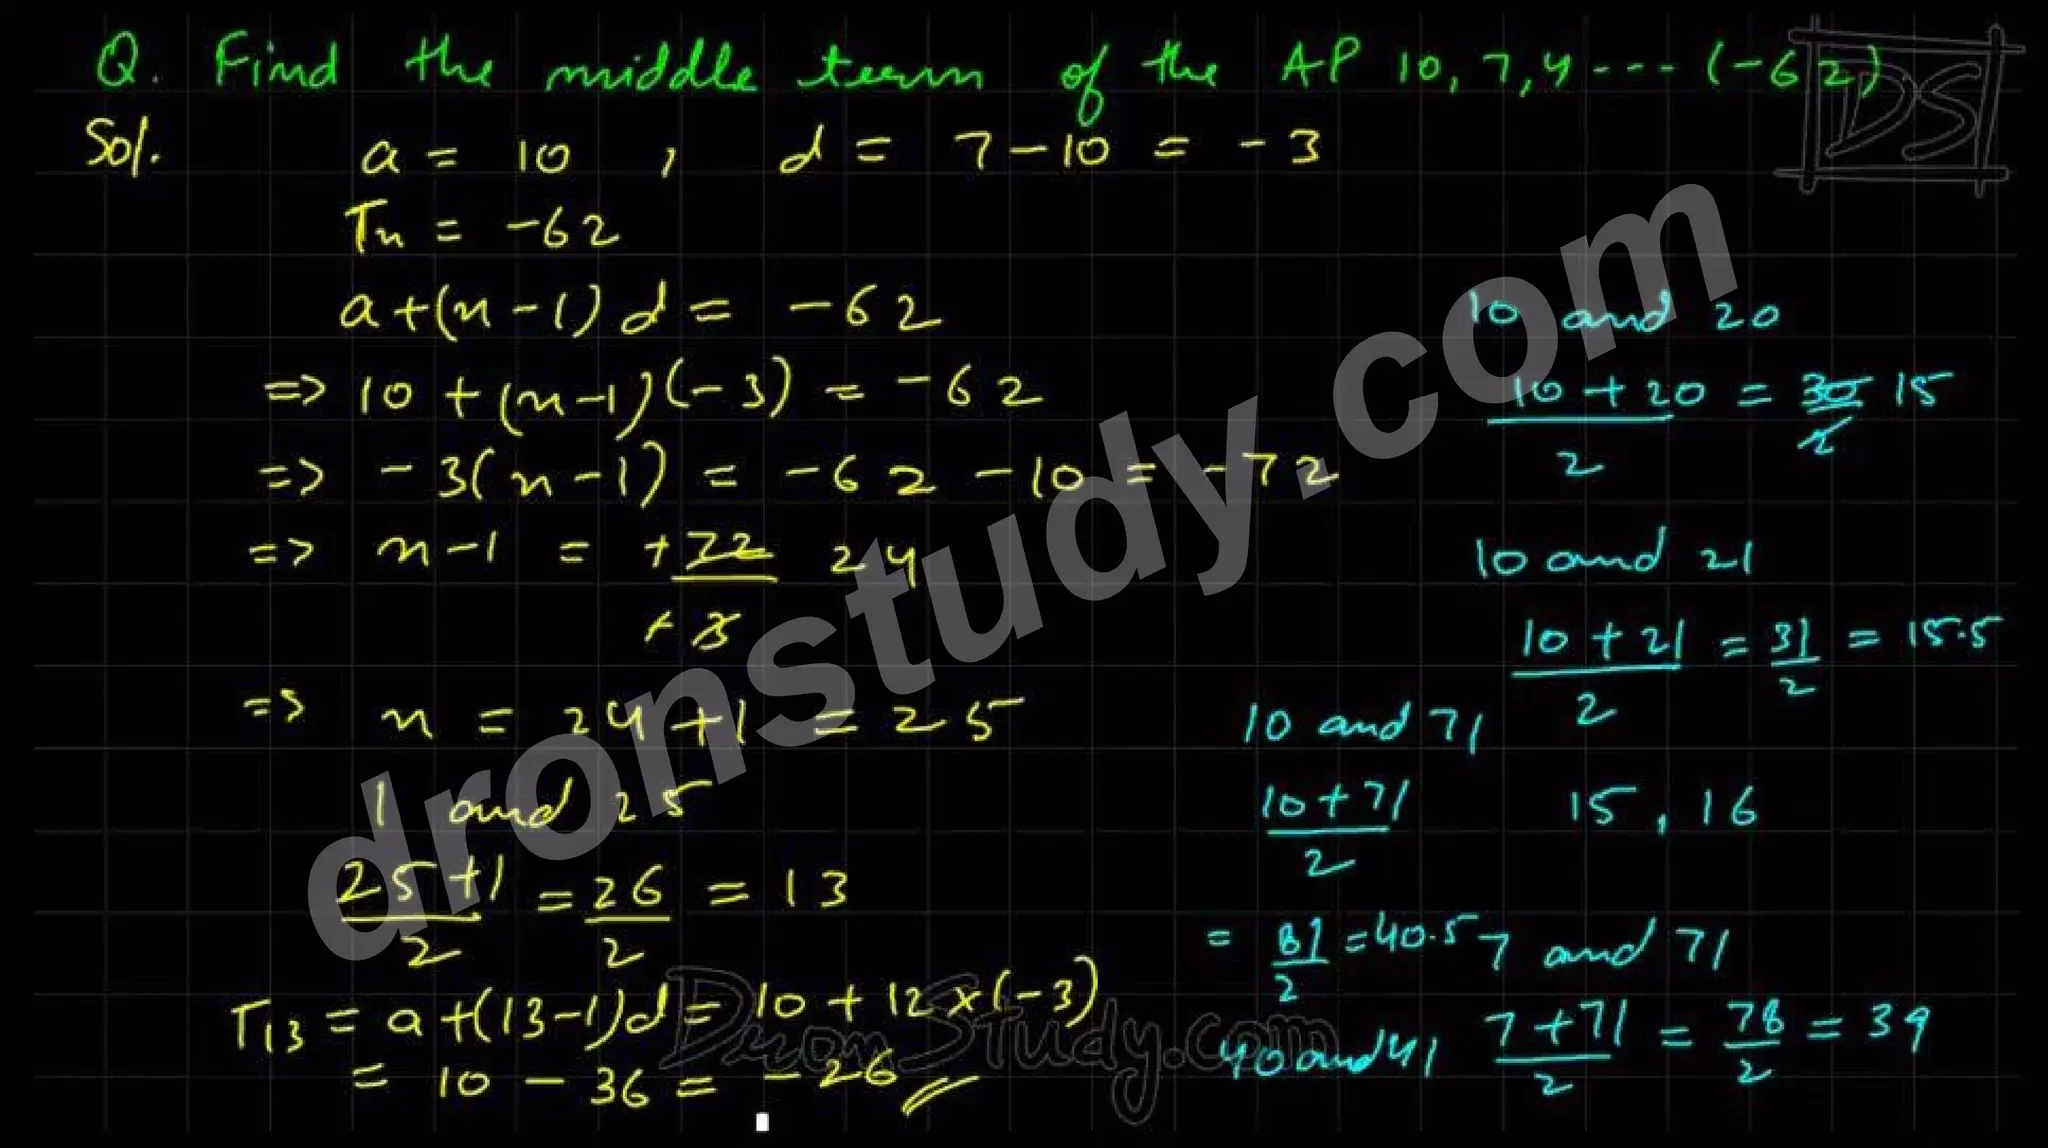 Q. Find the middle term of the AP 10, 7, 4 --- (-62)
DS
Sol. a = 10 , d = 7 - 10 = - 3
Tn = -62
a + (n - 1) d = - 62
=> 10 + (n - 1) (- 3) = - 62
=> - 3 (n - 1) = - 62 - 10 = - 72
=> n - 1 = +72/+3 24
=> n = 24 + 1 = 25
1 and 25
25 + 1/2 = 26/2 = 13
T13 = a + (13 - 1) d = 10 + 12 × (- 3)
= 10 - 36 = - 26
10 and 20
10 + 20/2 = 30/2 15
10 and 21
10 + 21/2 = 31/2 = 15.5
15, 16
10 and 71
10 + 71/2
= 81/2 = 40.5
40 and 41
7 and 71
7 + 71/2 = 78/2 = 39
dronstudy.com
DronStudy.com